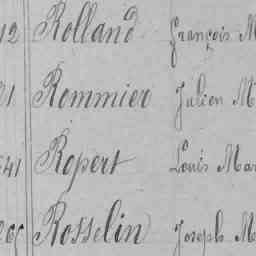 12 Rolland François M
21 Rommier Julien M
541 Ropert Louis Mar
Rosselin Joseph M